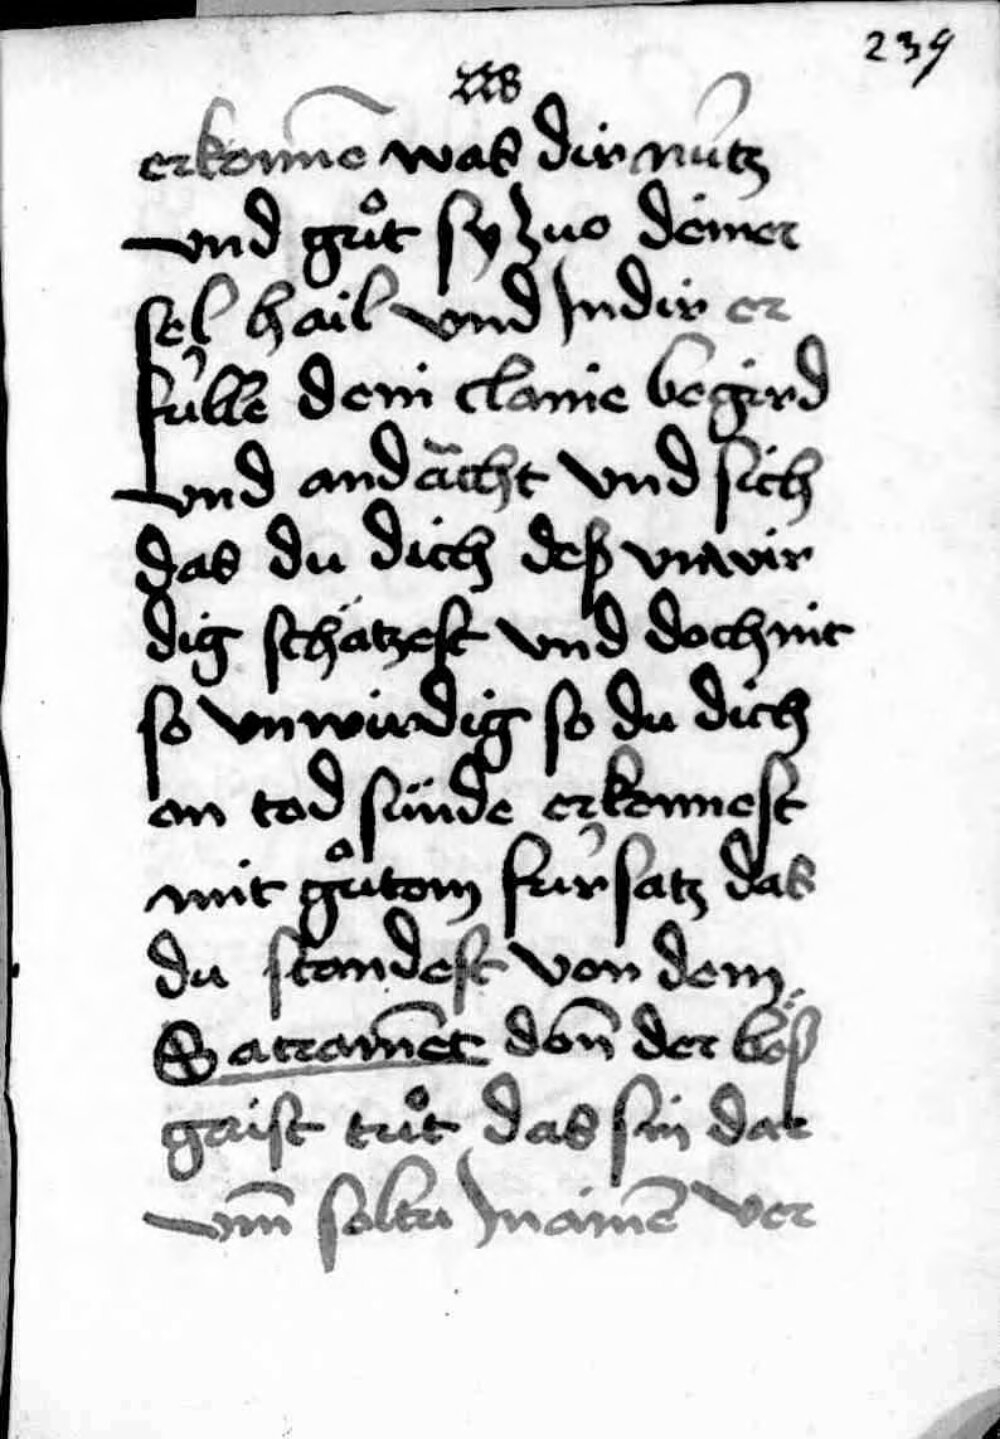 239
erkenne was dir nutz
vnd gůt sy zuo deiner
sel hail vnd In dir er
fulle dein claine begird
vnd andächt vnd sich
das du dich deß vnwir
dig schätzest vnd doch nit
so vnwirdig so du dich
on tod sünde erkennest
mit gůtem fursatz das
du standest von dem
Sacrament den der böß
gaist tůt das sin dar
vm soltu In ainen ver